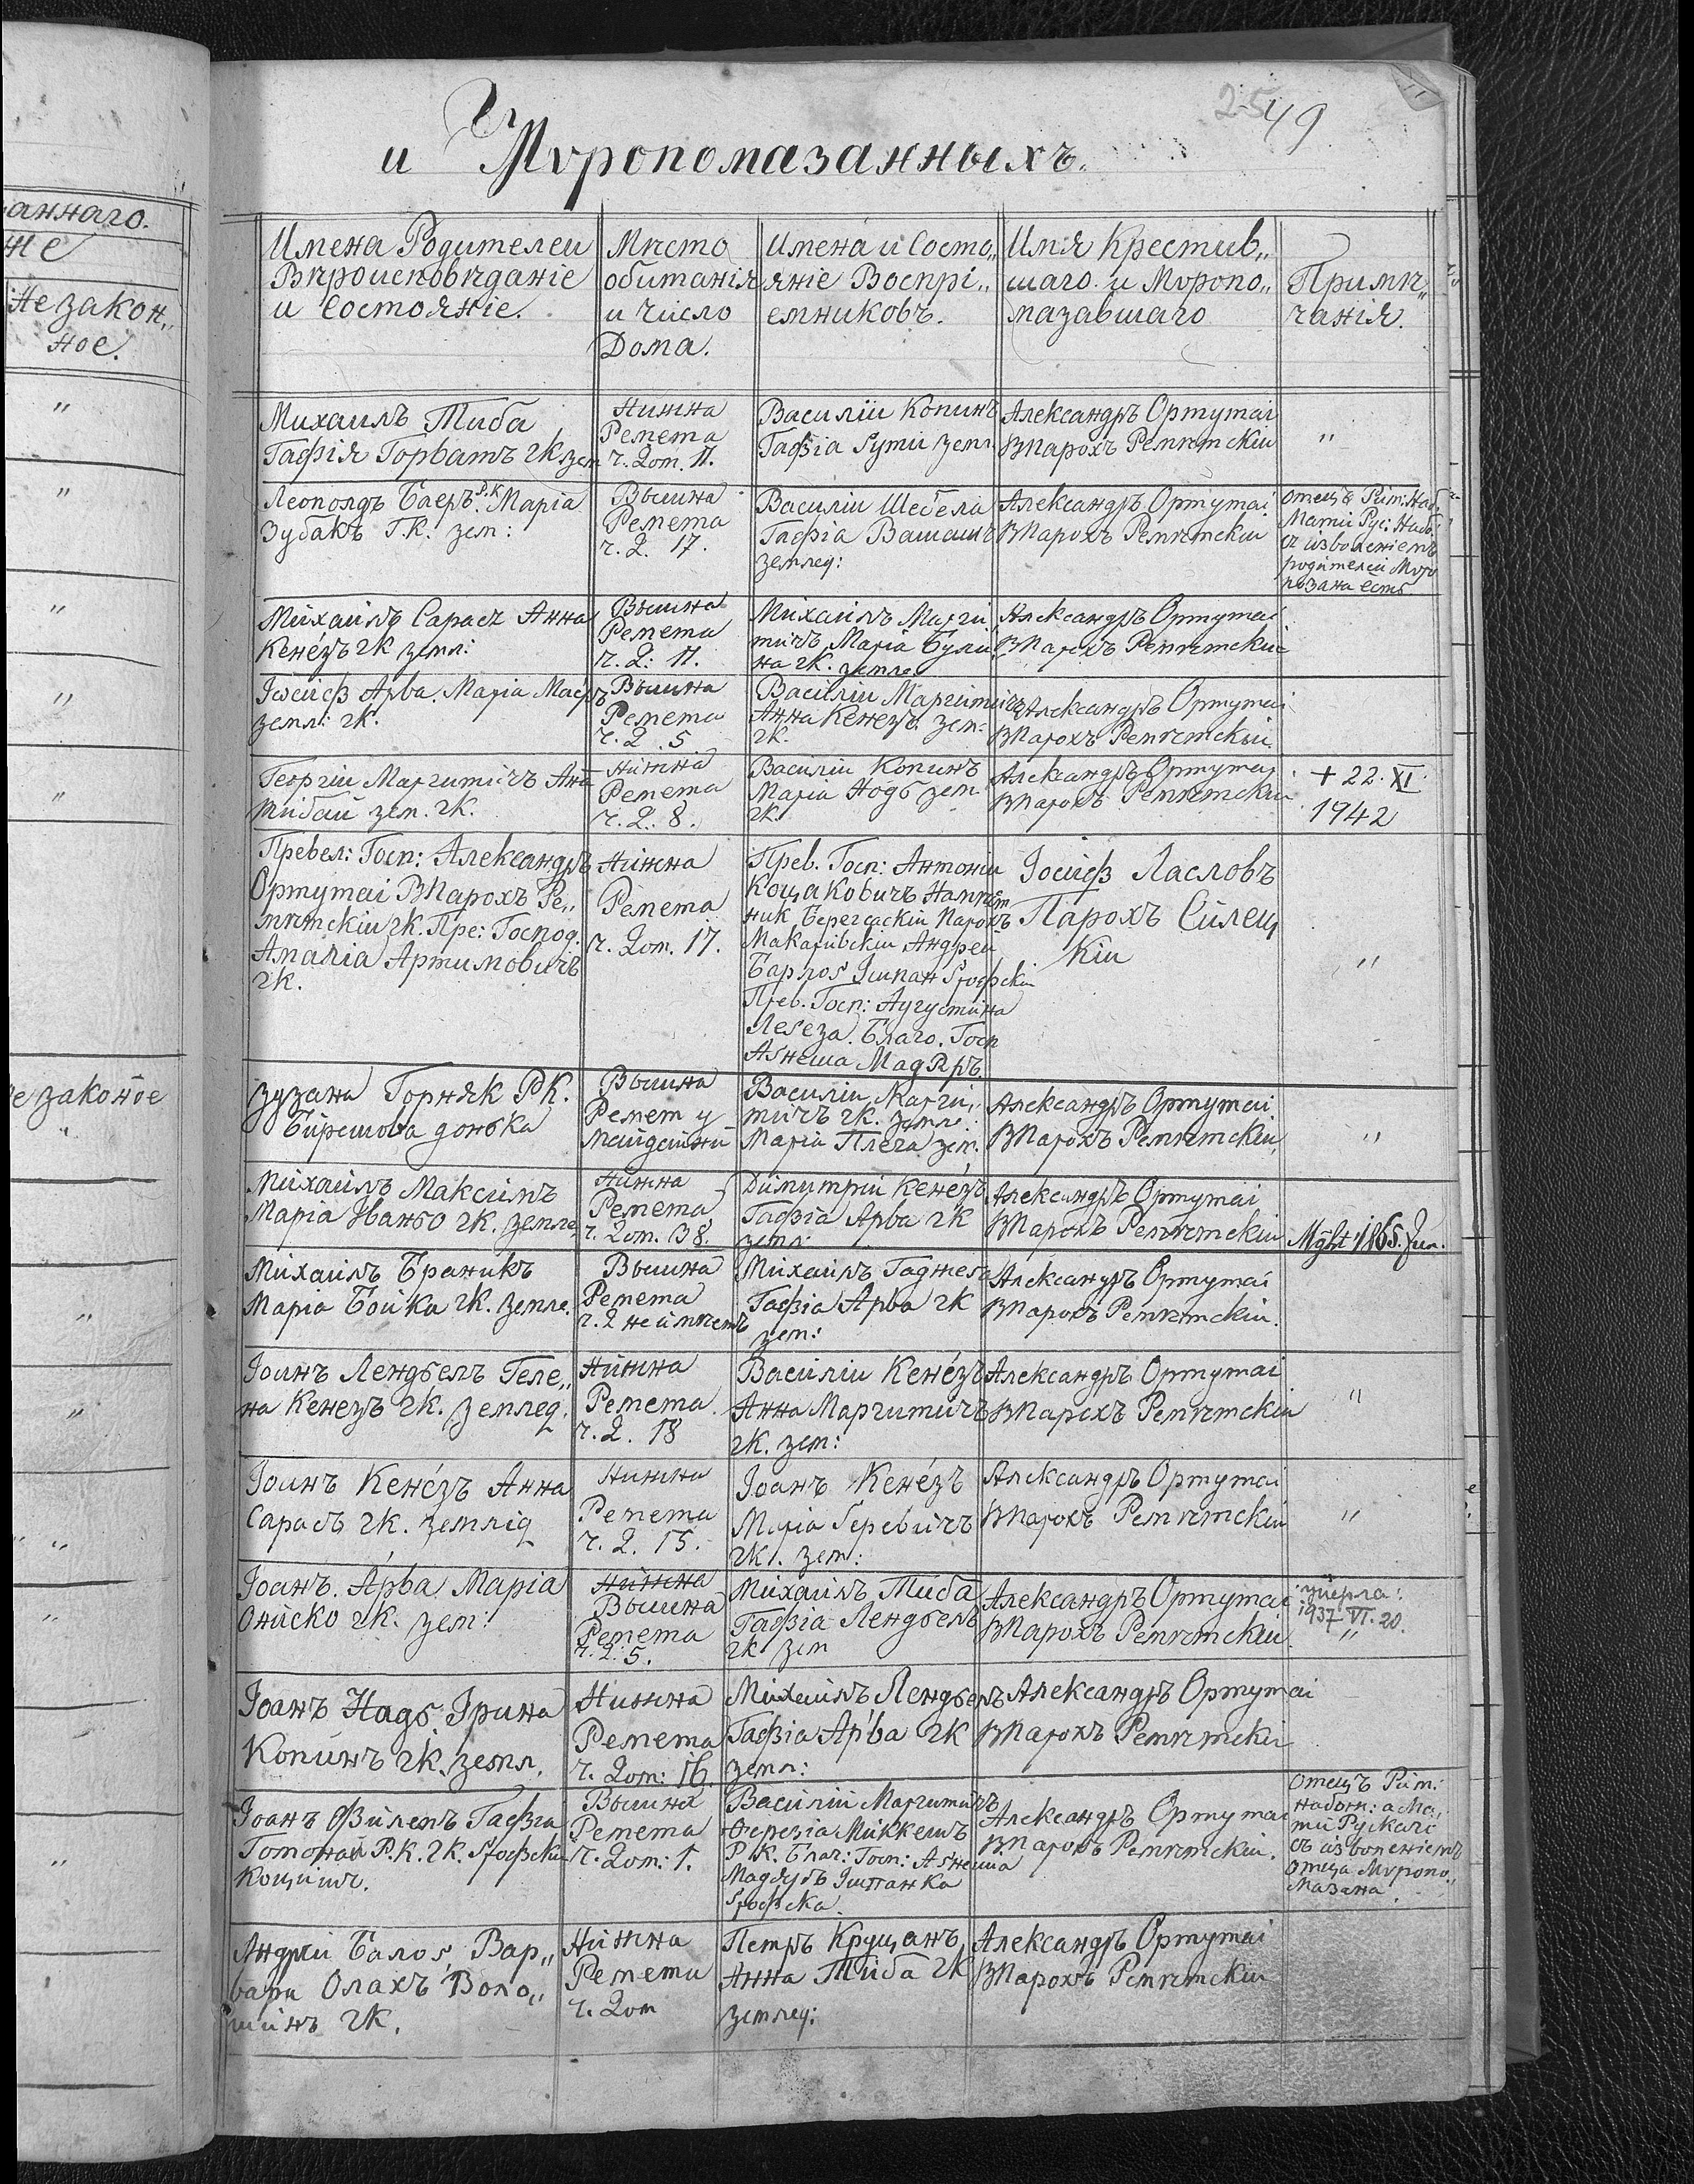 аннаго.
не
Незакон„
ное.
незаконое
2549
и Мѵропомазанныхъ.
Имена Родителей
Вѣроисповѣданіе
и состояніе.
Мѣсто
обитанія
и число
Дома.
Имена и Состо„
яніе Воспрі„
емниковъ.
Имя Крестив„
шаго и Мѵропо„
мазавшаго
Примѣ„
чанія.
Михаилъ Тиба
Гафія Горватъ гк. зем
Нижна
Ремета
ч. Дом. 11.
Василій Копинъ
Гафіа зем
Александръ Ортутаі
ВПарохъ Реметскій
"
Леополдъ Баеръ Р.К. Маріа
Зубакъ Г.К. зем:
Вышна
Ремета
ч. Д. 17.
Василій Шебела
Гафіа Вашашъ
землед:
Александръ Ортутаі
ВПарохъ Реметскій
отецъ Рим: Наб.
Мати Рус: Наб.
съ изволеніемъ
родителей Мѵро
позана естъ
Михаилъ Сарасъ Анна
Кенéзъ гк земл:
Вышна
Ремета
ч. Д: 11.
Михаилъ Марги„
тичъ Маріа Були„
на гк. земле
Александръ Ортутаі
ВПарохъ Реметскій
Іосифъ Арва Маріа
земл: гк.
Вышна
Ремета
ч. Д. 5
Василій Маргитичъ
Анна Кенезъ зем:
гк.
Александръ Ортутаі
ВПарохъ Реметскій
Георгій Маргитичъ Ана
Тибай зем. гк.
Нижна
Ремета
ч. Д. 8.
Василій Копинъ
Маріа Нодь зем
гк.
Александръ Ортутаі
ВПарохъ Реметскій
+ 22. XI.
1942
Превел: Госп: Александръ
Ортутаі ВПарохъ Ре„
метскій гк. Пре: Господ.
Амаліа Артимовичъ
гк.
Нижна
Ремета
ч. Дом. 17.
Прев. Госп: Антоній
Коцаковичъ Намѣст
ник Берегсаскій Парохъ
Макаривскій Андрей
Ишпан
Прев. Госп: Аугустина
Благо. Госп
Агнеша Мадяръ
Іосифъ Ласловъ
Парохъ Силец
кій
"
Зузана Горнякъ РК.
Бирешова донька
Вышна
Ремет у
Василій Марги„
тичъ гк. земле
Маріа Плега зем.
Александръ Ортутаі
ВПарохъ Реметскій
"
Михаилъ Максимъ
Маріа Иваньо гк. земле
Нижна
Ремета
ч. Дом. 38.
Димитрій Кенéзъ
Гафіа Арва гк
земл:
Александръ Ортутаі
ВПарохъ Реметскій
Михаилъ Браникъ
Маріа Бойка гк. земле.
Вышна
Ремета
ч. Д неимѣетъ
Михаилъ Гаджега
Гафіа Арва гк
зем:
Александръ Ортутаі
ВПарохъ Реметскій.
Іоанъ Лендьелъ Геле„
на Кенезъ гк. землед.
Нижна
Ремета
ч. Д. 18
Василій Кенéзъ
Анна Маргитичъ
гк. зем:
Александръ Ортутаі
ВПарохъ Реметскій
"
Іоанъ Кенéзъ Анна
Сарасъ гк. земліД
Нижна
Ремета
ч. Д. 15.
Іоанъ Кенéзъ
Маріа Геревичъ
гк. зем:
Александръ Ортутаі
ВПарохъ Реметскій
"
Іоанъ Арва Маріа
Ониско гк. зем:
Нижна
Вышна
Ремета
ч. Д. 5.
Михаилъ Тиба
Гафіа Лендьелъ
гк зем
Александръ Ортутаі
ВПарохъ Реметскій
умерла:
1937 VI. 20.
"
Іоанъ Надь Ірина
Копинъ гк. земл.
Нижна
Ремета
ч. Дом: 16.
Михаилъ Лендьелъ
Гафіа Арва гк
земл:
Александръ Ортутаі
ВПарохъ Реметскі
Іоанъ Филепъ Гафіа
Р.К. гк.
Вышна
Ремета
ч. Дом: 1.
Василій Маргитичъ
Ѳерезіа Миккешъ
Р.К. Благ: Госп: Агнеша
Мадяръ Ишпанка
Александръ Ортутаі
ВПарохъ Реметскій.
отецъ Рим:
набож: а Ма„
ти Рускаго
съ изволеніемъ
отца Мѵропо„
мазана.
Андрій Балог, Вар„
вара Олахъ Воло„
шинъ гк.
Нижна
Ремета
ч. Дом
Петръ Круцанъ
Анна Тиба гк
землед:
Александръ Ортутаі
ВПарохъ Реметскій